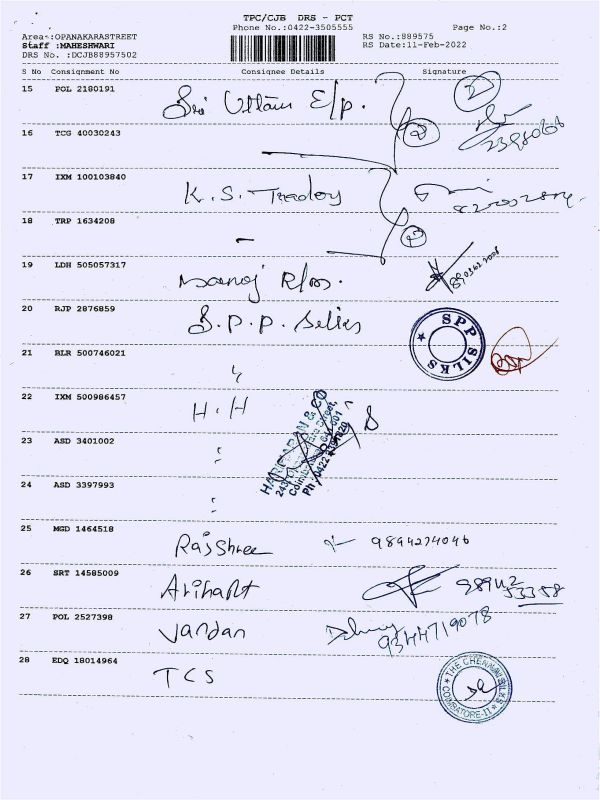 TPC/CJB DRS - PCT
Phone No.:0422-3505555 Page No.:2
Area :OPANAKARASTREET RS No.:889575
Staff :MAHESHWARI RS Date:11-Feb-2022
DRS No. :DCJB88957502
S No Consignment No Consignee Details Signature
15 POL 2180191 Sri Uttam E/p. 2
16 TCG 40030243 2
17 IXM 100103840 K.S. Traders
18 TRP 1634208 - 2
19 LDH 505057317 Manoj
20 RJP 2876859 S.P.P. Silks
SPP SILKS
21 BLR 500746021 "
22 IXM 500986457 H.H
23 ASD 3401002 "
24 ASD 3397993 "
25 MGD 1464518 Rajshree 9894274046
26 SRT 14585009 Arihant 98942
53358
27 POL 2527398 Vardan 9344719078
28 EDQ 18014964 TCS
THE CHENNAI SILKS
COIMBATORE-II